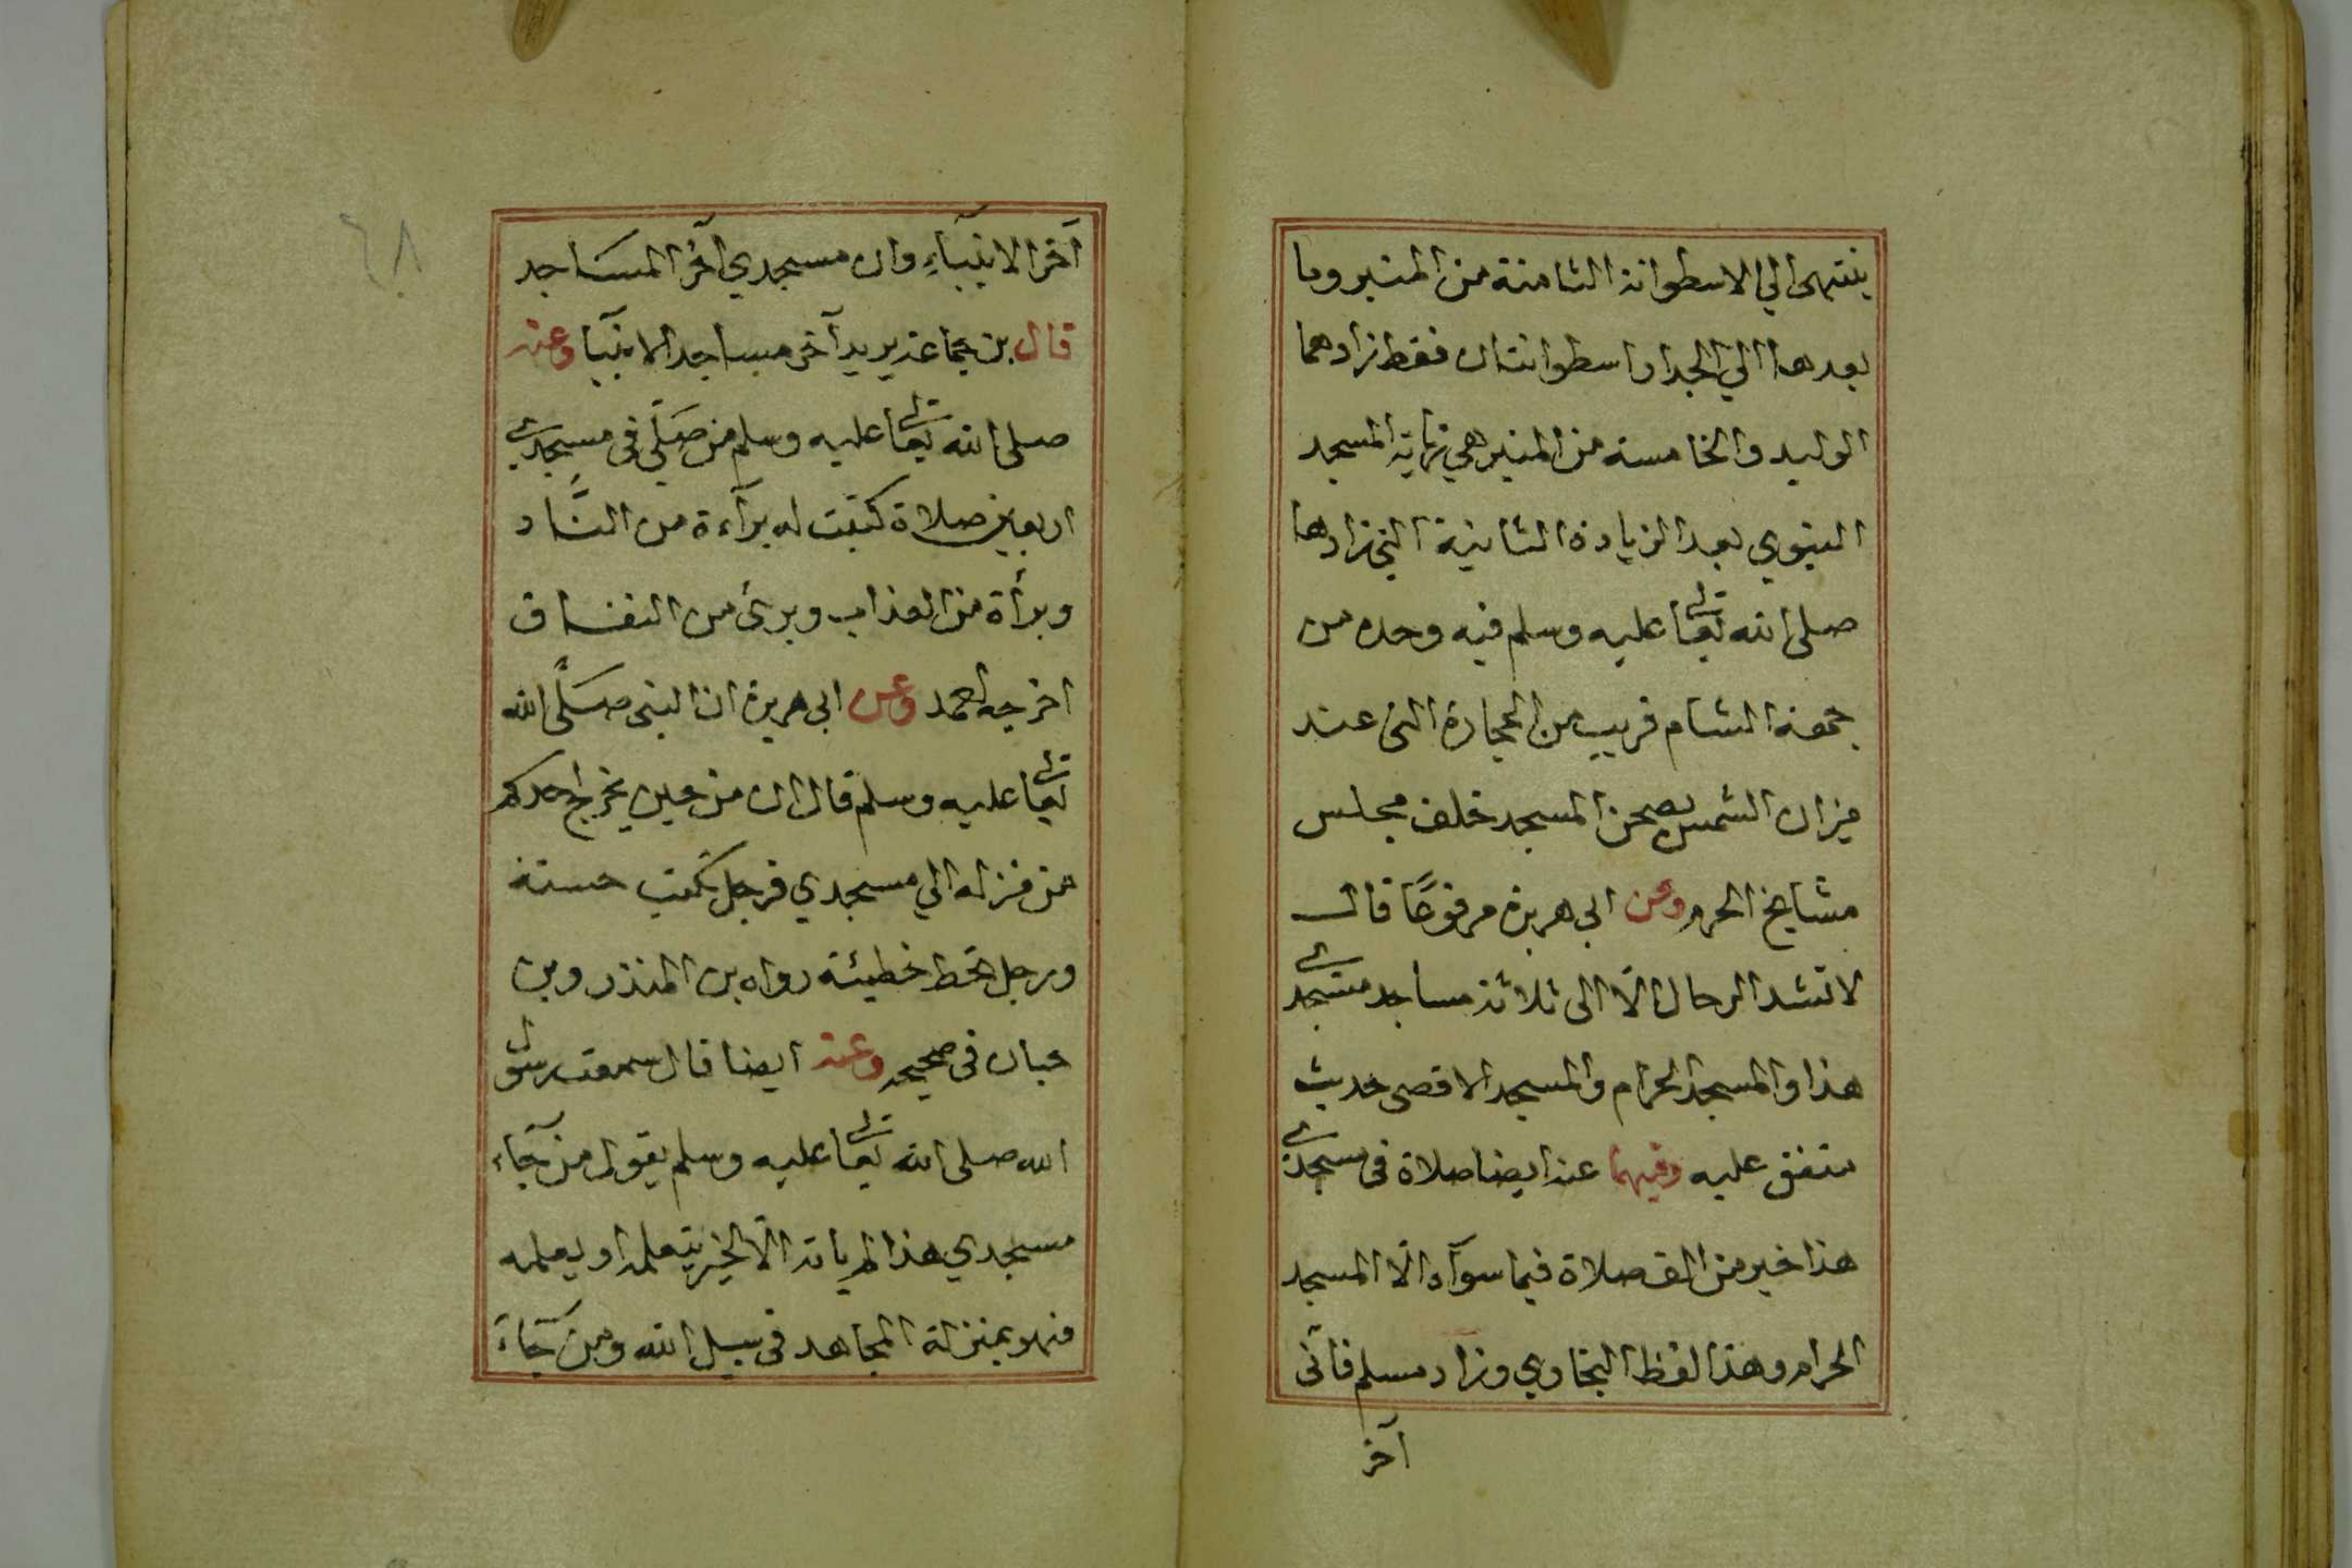 ينتهى الي الاسطوانة الثامنة من المنبر وما
بعدها الي الجدار اسطوانتان فقط زادهما
الوليد والخامسة من المنبر هي نهاية المسجد
النبوي بعد الزيادة الثانية التي زادها
صلى الله تعالى عليه وسلم فيه وحده من
جهة الشام قريب من الحجارة التى عند
ميزان الشمس بصحن المسجد خلف مجلس
مشايخ الحرم وعن ابى هريرة مرفوعًا قال
لا تشد الرحال الّا الى ثلاثة مساجد مسجدى
هذا والمسجد الحرام والمسجد الاقصى حديث
متفق عليه وفيهما عنه ايضا صلاة فى مسجدى
هذا خير من الف صلاة فيما سوآه الّا المسجد
الحرام وهذا لفظ البخاري وزاد مسلم فانّى
آخر
آخر الانبيآءِ وان مسجدي آخر المساجد
قال بن جماعة يريد آخر مساجد الانبيآ وعنه
صلى الله تعالى عليه وسلم من صلّى فى مسجدى
اربعين صلاة كتبت له برآءة من النَّار
وبرأة من العذاب وبرئ من النفاق
اخرجه احمد وعن ابى هريرة ان النبى صلّى الله
تعالى عليه وسلم قال ان من حين يخرج احدكم
من منزله الي مسجدي فرجل تكتب حسنة
ورجل تحط خطيئة رواه بن المنذر وبن
حبان فى صحيحه وعنه ايضا قال سمعت رسول
الله صلى الله تعالى عليه وسلم يقول من جآء
مسجدي هذا لم ياته الّا لخير يتعلمه او يعلمه
فهو بمنزلة المجاهد فى سبيل الله ومن جآء
٦٨